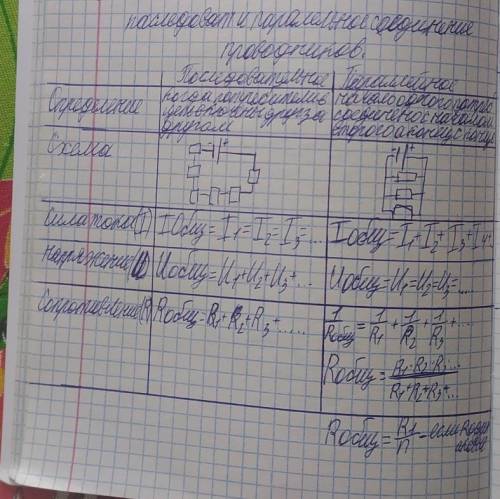 последоват и паралельное соединение
проводников.
Последовательное
Параллельное
Определение
когда потребители в
цепь включены друг за
другом
начало одного потреб
соединеное началом
второго а конец с концу
Схема
Сила тока (I)
Iобщ = I1 = I2 = I3 = ...
Iобщ = I1 + I2 + I3 + I4 +
Напряжение (U)
Uобщ = U1 + U2 + U3 + ...
Uобщ = U1 = U2 = U3 = ...
Сопротивление (R)
Rобщ = R1 + R2 + R3 + .....
1/Rобщ = 1/R1 + 1/R2 + 1/R3 + ...
Rобщ = R1·R2·R3.../R1+R2+R3+...
Rобщ = R1/n - если